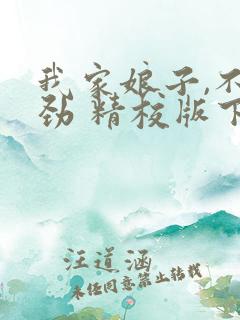 我家娘子,不
劲 精校版下
汪道涵
未经同意禁止转载